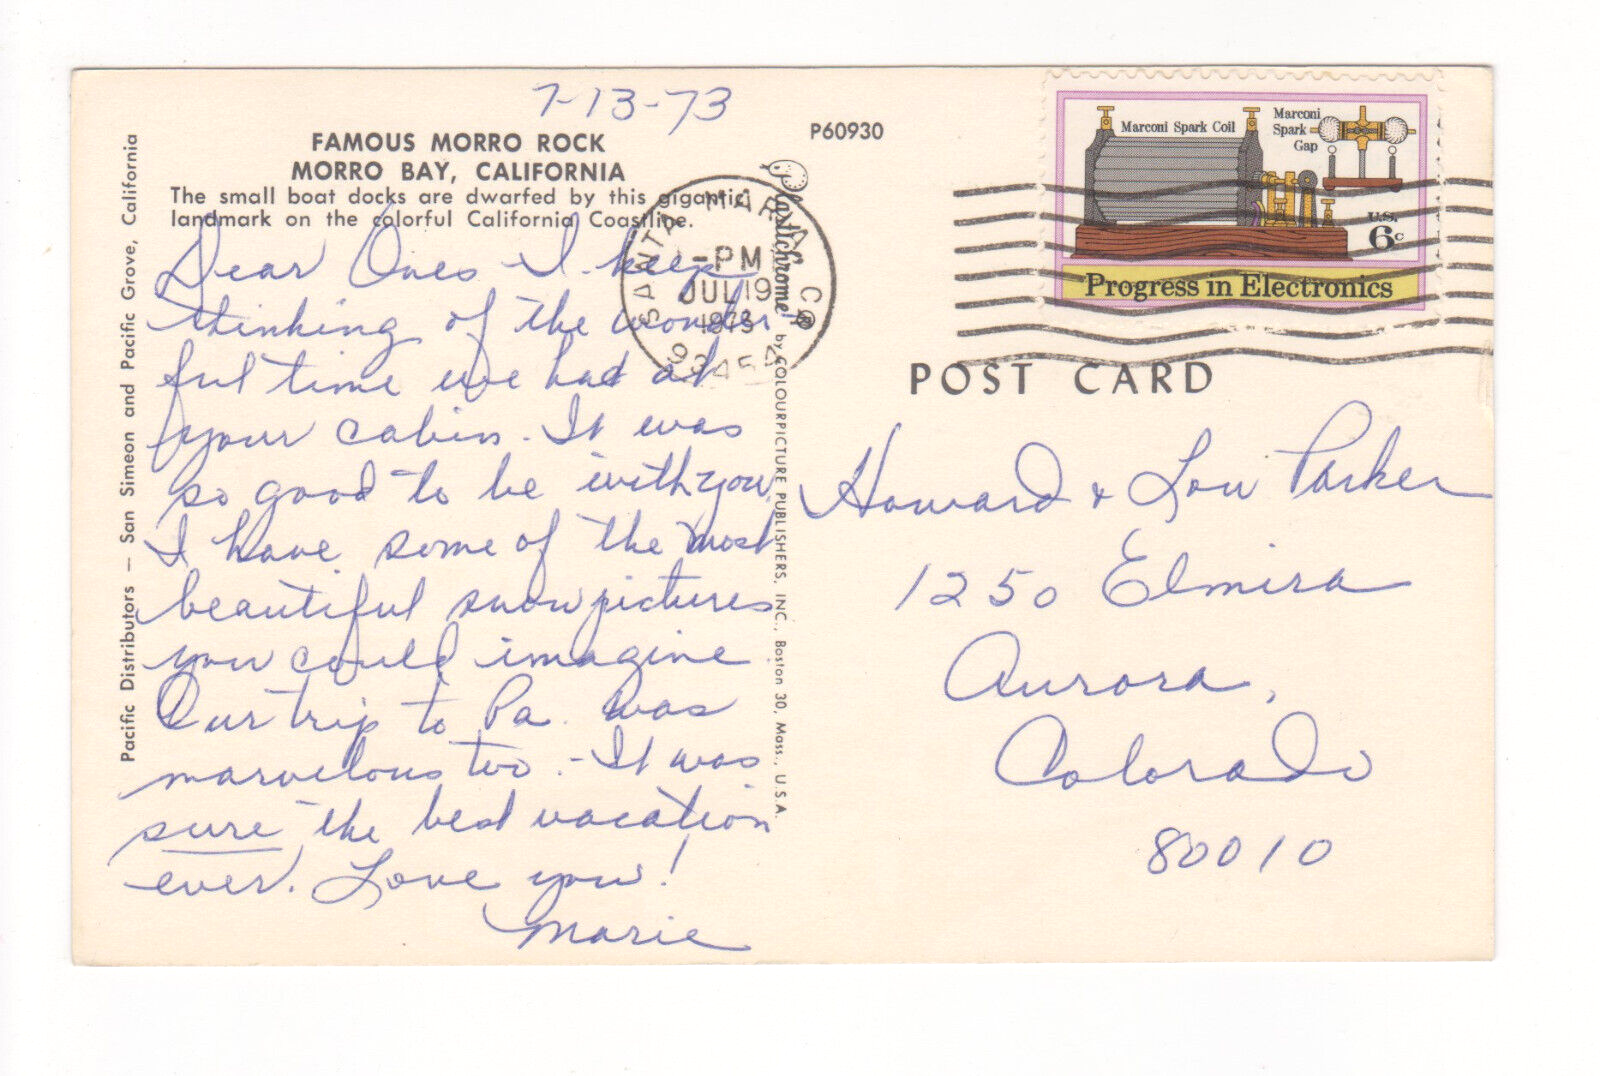 7-13-73
FAMOUS MORRO ROCK
MORRO BAY, CALIFORNIA
The small boat docks are dwarfed by this gigantic
landmark on the colorful California Coastline.
P60930
Pacific Distributors — San Simeon and Pacific Grove, California
Dear Ones - I keep
thinking of the wonder
ful time we had at
your cabin. It was
so good to be with you,
I have some of the most
beautiful snow pictures
you could imagine
Our trip to Pa. was
marvelous too. - It was
sure the best vacation
ever. Love you!
Marie
Plastichrome ® by COLOURPICTURE PUBLISHERS, INC., Boston 30, Mass., U.S.A.
SANTA MARIA CA
PM
JUL 19
1973
93454
Marconi Spark Coil
Marconi
Spark
Gap
U.S.
6c
Progress in Electronics
POST CARD
Howard & Lou Parker
1250 Elmira
Aurora,
Colorado
80010